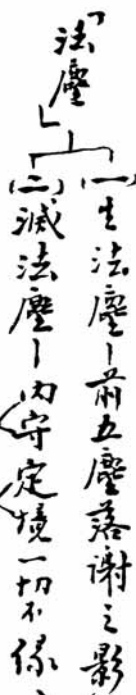 「法塵」
(一)生法塵－前五塵落謝之影
(二)滅法塵－內守定境一切不緣